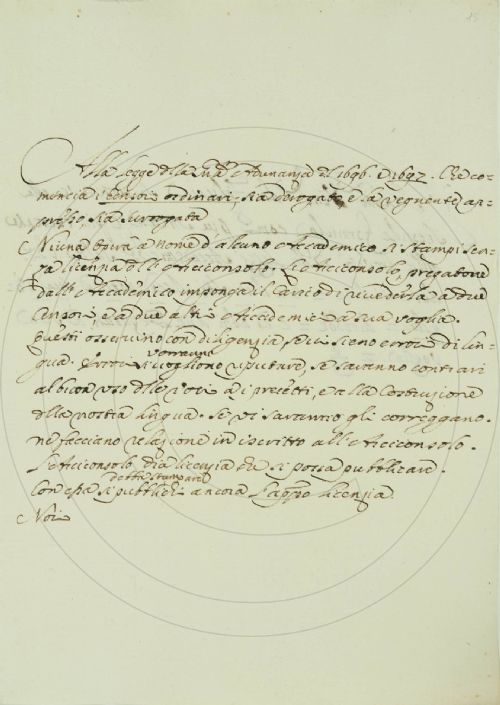 15
Alla legge della nra Adunanza del 1696. e 1697. che co-
mincia i Censori ordinari, sia derogato e la seguente ap-
presso, sia surrogata
Niuna opera a nome d'alcuno Accademico si stampi sen-
za licenzia dell'Arciconsolo. L'Arciconsolo, pregatone
dall'Accademico imponga il carico di rivederla a due
Censori, e a due altri Accademici a sua voglia.
Questi osservino con diligenzia se vi sieno errori di lin-
gua. Errori si vogliono reputare, se saranno contrari
verranno
al buon uso delle voci a i precetti, e alla Costruzione
della nostra lingua. Se vi saranno gli correggano.
ne facciano relazione in iscritto all'Arciconsolo.
L'Arciconsolo dia licenzia che si possa pubblicare.
Con essa si pubblichi ancora l'appo licenzia.
detta stampare
Noi